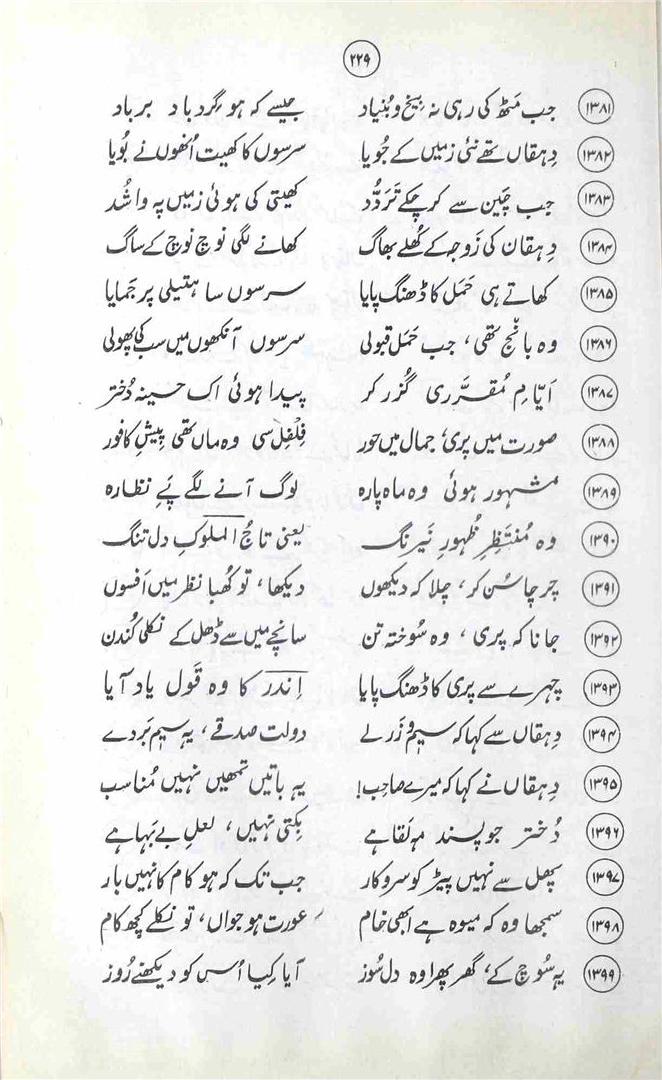 ۲۲۹
۱۳۸۱ جب مَٹھ کی رہی نہ بیخ و بُنیاد جیسے کہ ہو گردباد برباد
۱۳۸۲ دِہقاں تھے نئی زمیں کے جُویا سرسوں کا کھیت اُنھوں نے بُویا
۱۳۸۳ جب چَین سے کر چکے تَرَدُّد کھیتی کی ہوئی زمیں پہ واشُد
۱۳۸۴ دِہقان کی زَوجہ کے کُھلے بھاگ کھانے لگی نوچ نوچ کے ساگ
۱۳۸۵ کھاتے ہی حَمَل کا ڈھنگ پایا سرسوں سا ہتیلی پر جَمایا
۱۳۸۶ وہ بانجھ تھی، جب حَمَل قبولی سرسوں آنکھوں میں سب کی پھولی
۱۳۸۷ اَیّامِ مُقرَّری گُزر کر پیدا ہوئی اک حسینہ دُختر
۱۳۸۸ صورت میں پری، جمال میں حور فِلفِل سی وہ ماں تھی پیشِ کافور
۱۳۸۹ مشہور ہوئی وہ ماہ پارہ لوگ آنے لگے پَئے نظارہ
۱۳۹۰ وہ مُنتَظِرِ ظُہورِ نَیرنگ یعنی تاجُ الملوکِ دل تنگ
۱۳۹۱ چرچا سُن کر، چلا کہ دیکھوں دیکھا، تو کُھبا نظر میں اَفسوں
۱۳۹۲ جانا کہ پری، وہ سُوختہ تن سانچے میں سے ڈھل کے نکلی کُندن
۱۳۹۳ چہرے سے پری کا ڈھنگ پایا اِندَر کا وہ قَول یاد آیا
۱۳۹۴ دِہقاں سے کہا کہ سیم و زَر لے دولت صدقے، یہ سیم بَر دے
۱۳۹۵ دِہقاں نے کہا کہ میرے صاحب! یہ باتیں تمھیں نہیں مُناسب
۱۳۹۶ دُختر جو پسندِ مہ لَقا ہے بِکتی نہیں، لعلِ بے بَہا ہے
۱۳۹۷ پھل سے نہیں پیڑ کو سروکار جب تک کہ ہو کام کا نہیں بار
۱۳۹۸ سمجھا وہ کہ میوہ ہے ابھی خام عورت ہو جواں، تو نکلے کچھ کام
۱۳۹۹ یہ سُوچ کے، گھر پھرا وہ دل سُوز آیا کِیا اُس کو دیکھنے رُوز